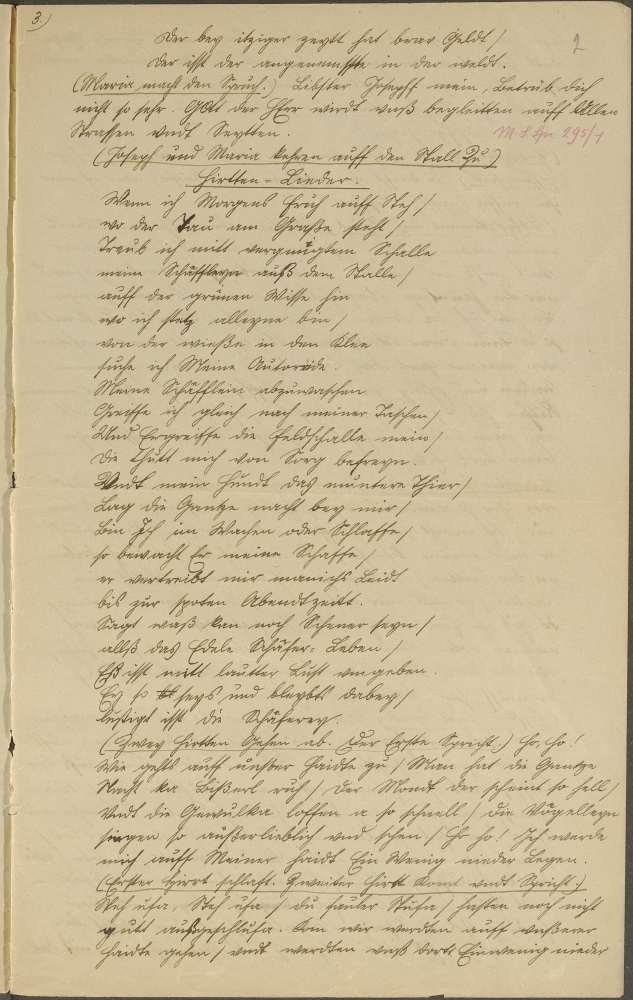 3.)
Der bey itziger Zeytt hat brav Geldt /
2
Der isst der angenemste in der weldt.
(Maria macht den Spruch.) Liebster Josepff mein, betrüb dich
nicht so sehr. Gott der Herr wirdt unß begleitten auff Allen
Strassen undt Seytten.
(Joseph und Maria kehren auff den Stall Zu)
Hirtten-Lieder.
Wenn ich Morgens Früh auff Steh /
wo der Tau am Graße steht /
Treub ich mitt vergnügtem Schalle
meine Schäffleyn auß dem Stalle /
auff der grünen Wisse hin
wo ich stetz alleyne bin /
von der wieße in den Klee
suche ich Meine
Meine Schäfflein abzuwaschen
Greiffe ich gleich nach meiner Taschen /
Und Ergreiffe die Feldschalle mein /
Die Thutt mich von Sorg befreyn.
Undt mein Hundt das muntere Thier /
Lag die Gantze nacht bey mir /
Bin Ich im Wachen oder Schlaffe /
so bewacht Er meine Schaffe /
er vertreibt mir manichs Leidt
bis zur spoten Abendtzeitt.
Sagt waß kan noch Schener seyn /
allß das Edele Schäfer-Leben /
Eß isst mitt lautter Lust umgeben.
Ey so seys und bleybts dabey /
lustigt isst die Schäferey.
(Zwey Hirtten Gehen ab. Der Erste Spricht.) Ho, Ho!
Wie gehts auff unßrer Haidte zu / Man hat die Gantze
Nacht ka Bißerl ruh / Der Mondt der scheint so hell /
Undt die Gewulka loffen a so schnell / die Vögelleyn
singen so außerlieblich und schen / Ho ho! Ich werde
mich auff Meiner Haidt Ein Wenig nieder Legen.
(Erster Hirrt schlaft. Zweiter Hirtt komt undt Spricht)
Steh ufa, Steh ufa / du fauler / hasten noch nicht
gutt außgeschlufa. Kom wir werdten auff unßerer
Haidte gehen / undt werdten unß dortt Einwenig nieder